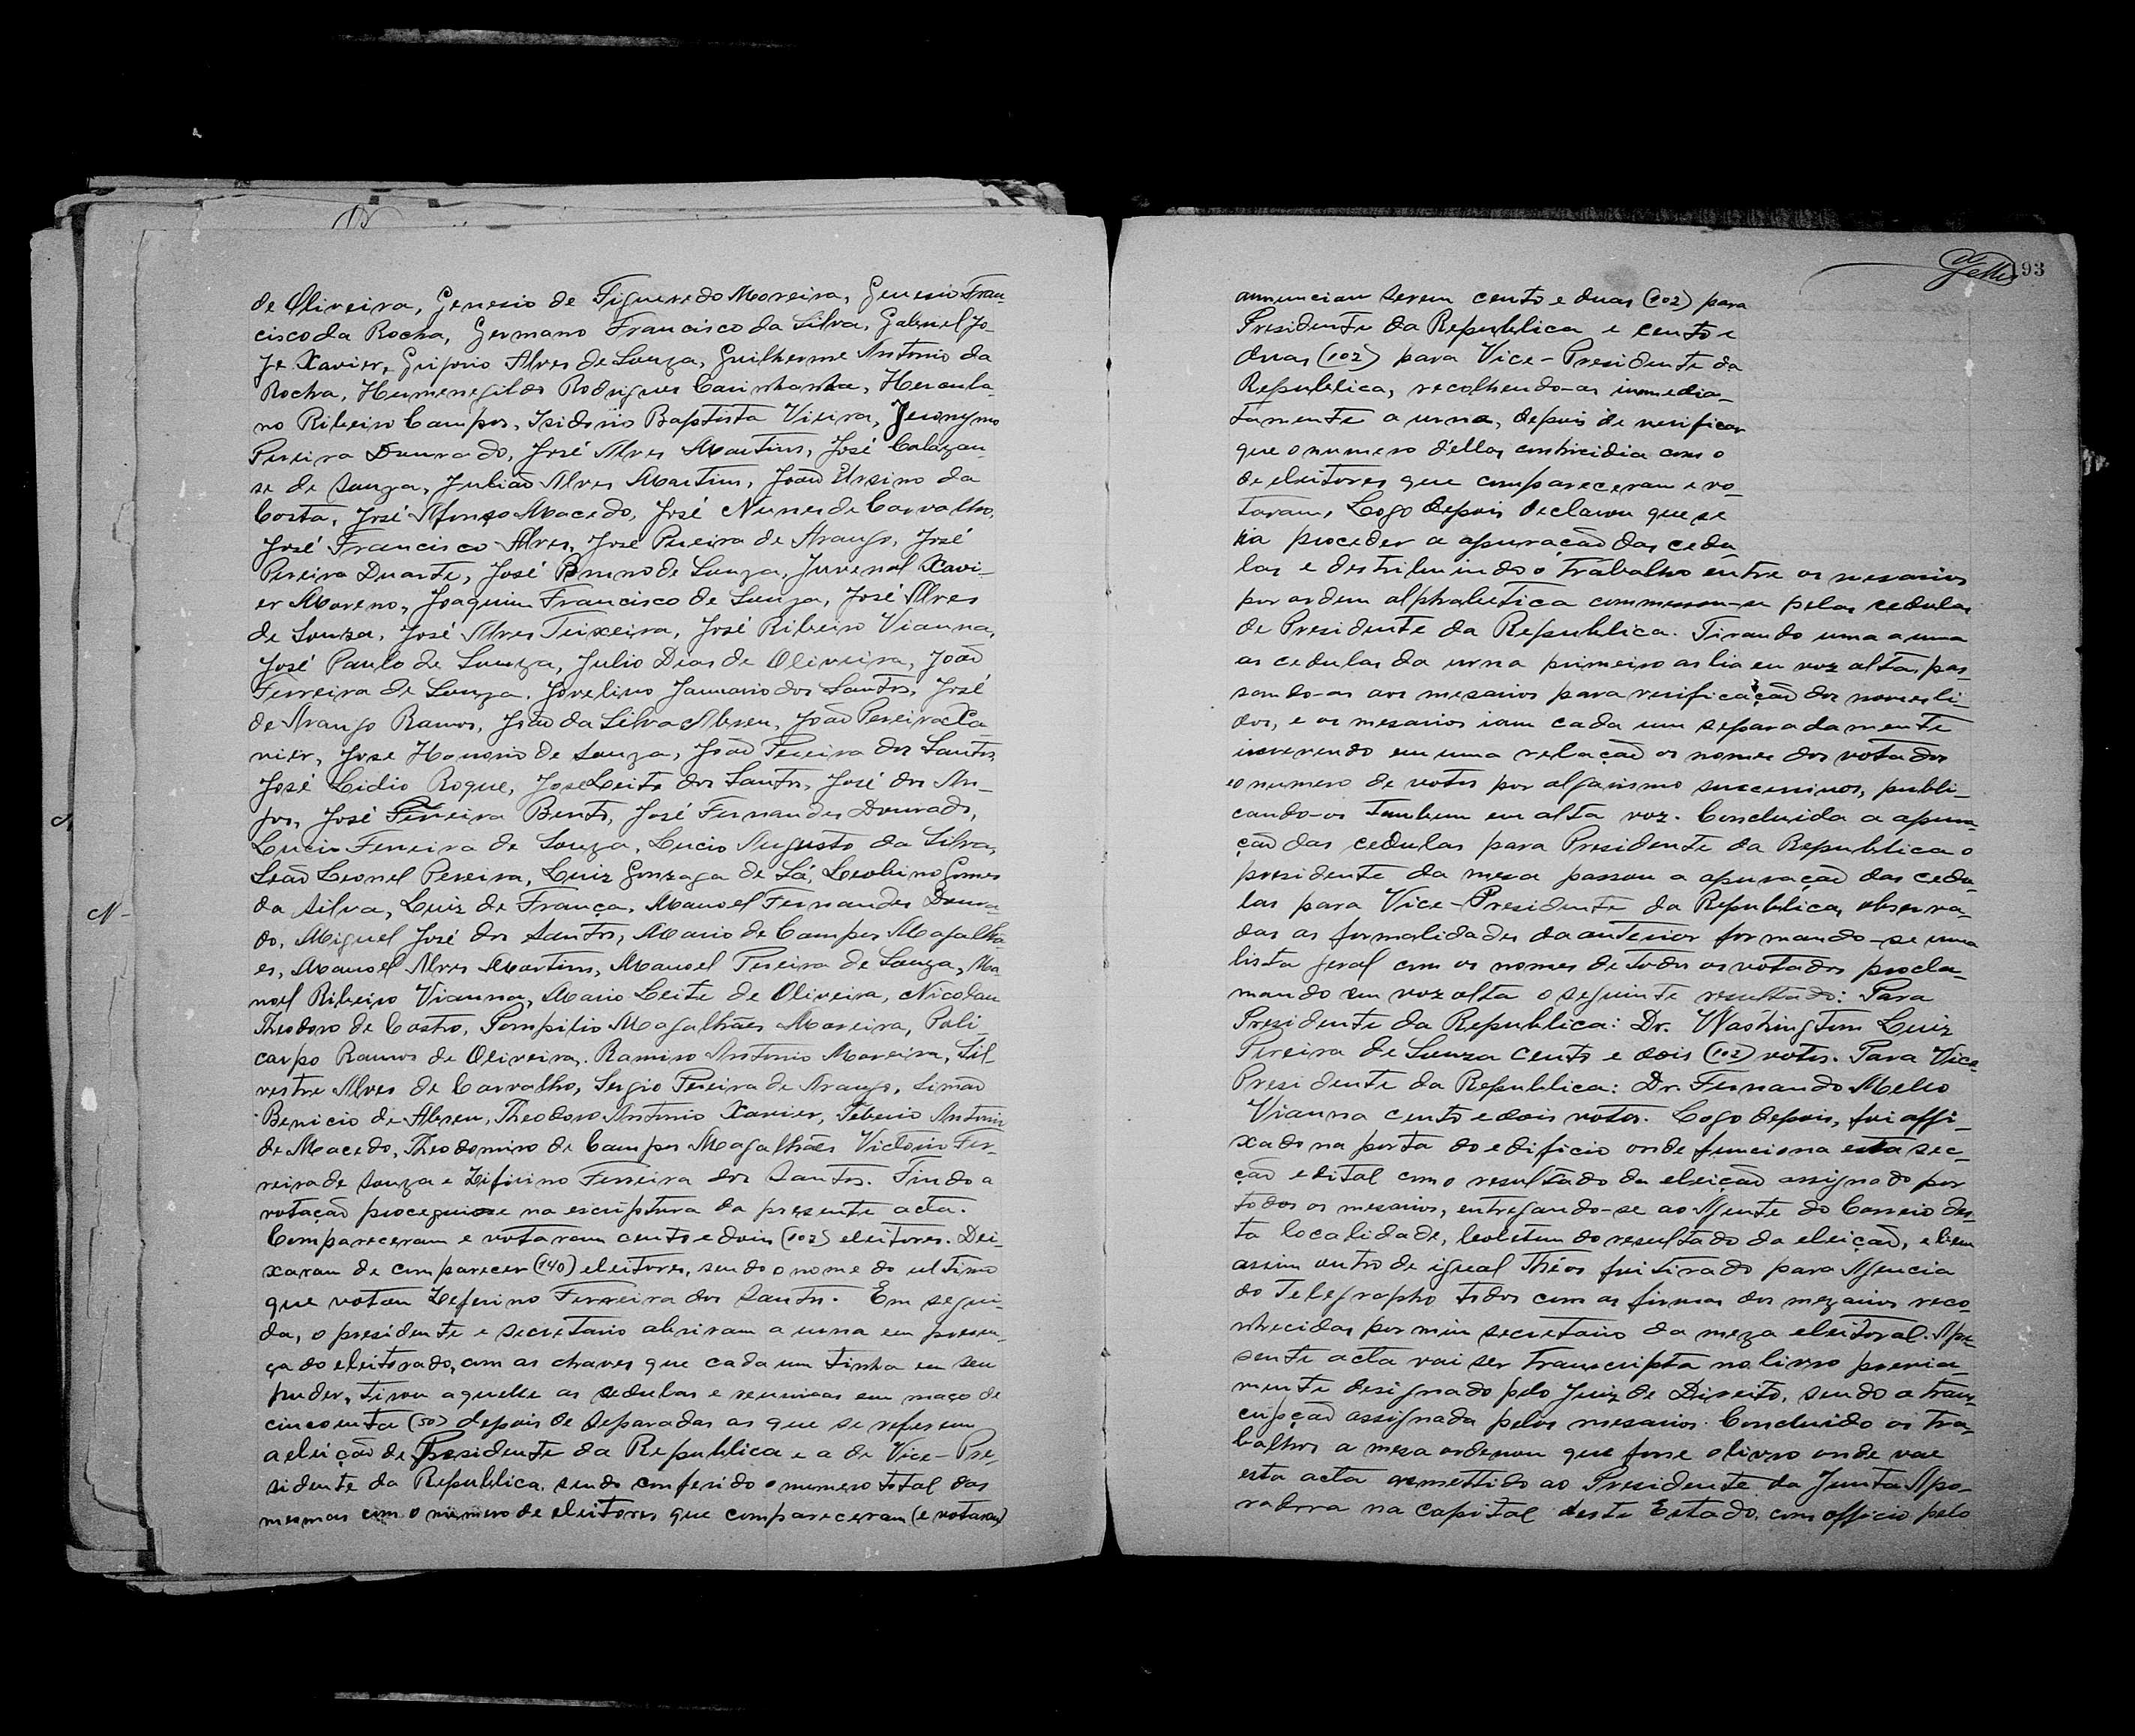 de Oliveira, Genesio de Figueredo Moreira, Genesio Fran-
cisco da Rocha, Germano Francisco da Silva, Gabriel Jo-
ze Xavier, Grigorio Alves de Souza, Guilherme Antonio da
Rocha, Humenegildo Rodrigues Carinhanha, Herculа-
no Ribeiro Campos, Isidorio Baptista Vieira, Jeronymo
Pereira Dourado, José Alves Martins, José Calazan-
se de Souza, Julião Alves Martins, João Ursino da
Costa, José Afonso Macedo, José Nunes de Carvalho,
José Francisco Alves, José Pereira de Araujo, José
Pereira Duarte, José Bruno de Souza, Juvenal Xavi-
er Moreno, Joaquim Francisco de Souza, José Alves
de Souza, José Alves Teixeira, José Ribeiro Vianna,
José Paulo de Souza, Julio Dias de Oliveira, João
Ferreira de Souza, Jovelino Januario dos Santos, José
de Araujo Ramos, João da Silva Abreu, João Pereira
nier, Jose Honorio de Souza, João Pereira dos Santos,
José Lidio Roque, Jose Leite dos Santos, José dos An-
jos, José Ferreira Bento, José Fernandes Dourado,
Lucio Ferreira de Souza, Lucio Augusto da Silva,
Leão Leonel Pereira, Luiz Gonzaga de Sá, Leolino Gomes
da Silva, Luiz de França, Manoel Fernandes Doura-
do, Miguel José dos Santos, Mario de Campos Magalhã-
es, Manoel Alves Martins, Manoel Pereira de Souza, Ma
noel Ribeiro Vianna, Mario Leite de Oliveira, Nicolau
Theodoro de Castro, Pompilio Magalhães Moreira, Poli-
carpo Ramos de Oliveira, Ramiro Antonio Moreira, Sil
vestre Alves de Carvalho, Sergio Pereira de Araujo, Simão
Benicio de Abreu, Theodoro Antonio Xavier, Teberio Antonio
de Macedo, Theodomiro de Campos Magalhães Victorio Fer-
reira de Souza e Zifirino Ferreira dos Santos. Findo a
votação proceguiose na escriptura da presente acta.
Compareceram e votaram cento e dois (102) eleitores. Dei-
xaram de comparecer (140) eleitores, sendo o nome do ultimo
que votou Zeferino Ferreira dos Santos. Em segui-
da, o presidente e secretario abriram a urna em presen-
ça do eleitorado, com as chaves que cada um tinha em seu
puder, tirou aquelle as sedulas e reunioas em maço de
cincoenta (50) depois de separadas as que se referem
a eleição de Presidente da Republica e a de Vice-Pre-
sidente da Republica, sendo conferido o numero total das
mesmas com o numero de eleitores que compareceram (e votaram)
93
annunciou serem cento e duas (102) para
Presidente da Republica e cento e
duas (102) para Vice-Presidente da
Republica, recolhendo-as immedia-
tamente a urna, depois de verificar
que o numero d'ellas conhicidia com o
de eleitores que compareceram e vo-
taram, Logo depois declarou que se
hia proceder a apuração das cedu-
las e destribuindo o trabalho entre os mesarios
por ordem alphabetica commesou-se pelas cedulas
de Presidente da Republica. Tirando uma a uma
as cedulas da urna primeiro as lia em voz alta, pas-
sando-as aos mesarios para verificação dos nomes li-
dos, e os mesarios iam cada um separadamente
iscrevendo em uma relação os nomes dos votados
e o numero de votos por algarismo sucessivos, publi-
cando-os tambem em alta voz. Concluida a apura-
ção das cedulas para Presidente da Republica o
presidente da mesa passou a apuração das cedu-
las para Vice-Presidente da Republica, observa-
das as formalidades da anterior formando-se uma
lista geral com os nomes de todos os votados procla-
mando em voz alta o seguinte resultado: Para
Presidente da Republica: Dr. Washington Luiz
Pereira de Souza cento e dois (102) votos. Para Vice
Presidente da Republica: Dr. Fernando Mello
Vianna cento e dois votos. Logo depois, foi affi-
xado na porta do edificio onde funciona esta sec-
ção edital com o resultado da eleição assignado por
todos os mesarios, entregando-se ao Agente do Correio des-
ta localidade, boletem do resultado da eleição, e bem
assim outro de igual Theor foi tirado para Agencia
do Telegrapho todos com as firmas dos mezarios reco-
nhecidas por mim secretario da meza eleitoral. A pre-
sente acta vai ser transcripta no livro previa-
mente designado pelo Juiz de Direito, sendo a trans-
cripção assignada pelos mesarios. Concluido os tra-
balhos a mesa ordenou que fosse o livro onde vae
esta acta remettido ao Presidente da Junta Apo-
radora na capital deste Estado, com officio pelo